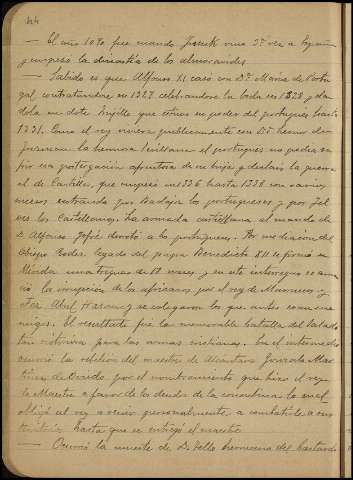 44
— El año 1090 fue cuando Jusuk vino 3ª vez a España
y empezó la dinastía de los almoravides
— Sabido es que Alfonso XI casó con Dª María de Portu
gal contratandose en 1327 celebrandose la boda en 1328 y da
dola en dote Trujillo que estuvo en poder del portugues hasta
1331. Como el rey viviera publicamente con Dª Leonor de
Guzman la hermosa Sevillana el portugues no podia su
frir esa postergación afrentosa de su hija y declaró la guerra
al de Castilla, que empezó en 1336 hasta 1338 con varios
sucesos entrando por Badajoz los portugueses y por
los Castellanos. La armada castellana al mando de
D. Alfonso Jofré derrotó a los portugueses. Por mediacion del
Obispo Rodez, legado del papa Benedicto XII se firmó en
Mérida una tregua de 18 meses y en este interregno se anun
ció la irrupcion de los africanos por el rey de Marruecos y
Abul Hazan y se coligaron los que antes eran ene
migos. El resultado fué la memorable batalla del Salado
tan victoriosa para las armas cristianas. En el intermedio
ocurrió la rebelión del maestre de Alcantara Gonzalo Mar
tinez de Oviedo por el nombramiento que hizo el rey
de Maestre a favor de los deudos de la concubina lo cual
obligó al rey a venir personalmente a combatirle a sus
hasta que se entregó el maestre
— Ocurrió la muerte de Dª Tello hermano del bastardo